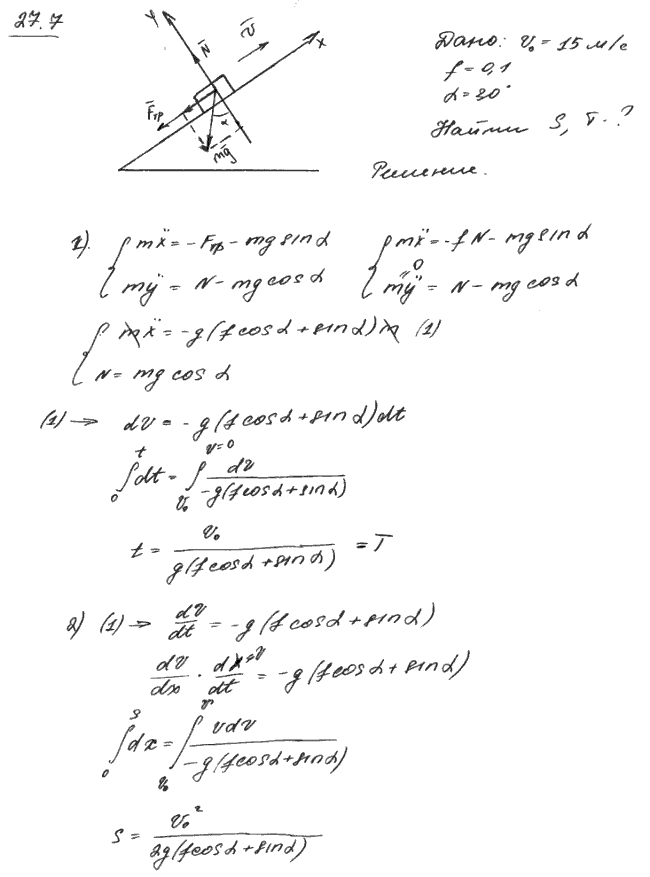 27.7
y N̄ v̄ x
F̄тр α
mḡ
Дано: v₀ = 15 м/с
f = 0,1
α = 30°
Найти S, T - ?
Решение.
1). { mẍ = -Fтр - mg sin α { mẍ = -fN - mg sin α
mÿ = N - mg cos α mÿ = N - mg cos α
0
{ mẍ = -g(f cos α + sin α)m (1)
N = mg cos α
(1) → dv = -g(f cos α + sin α)dt
∫₀ᵗ dt = ∫_{v₀}^{v=0} dv / -g(f cos α + sin α)
t = v₀ / g(f cos α + sin α) = T
2) (1) → dv/dt = -g(f cos α + sin α)
dv/dx · dx/dt = -g(f cos α + sin α)
=v
∫₀ˢ dx = ∫_{v₀}^{v} vdv / -g(f cos α + sin α)
S = v₀² / 2g(f cos α + sin α)